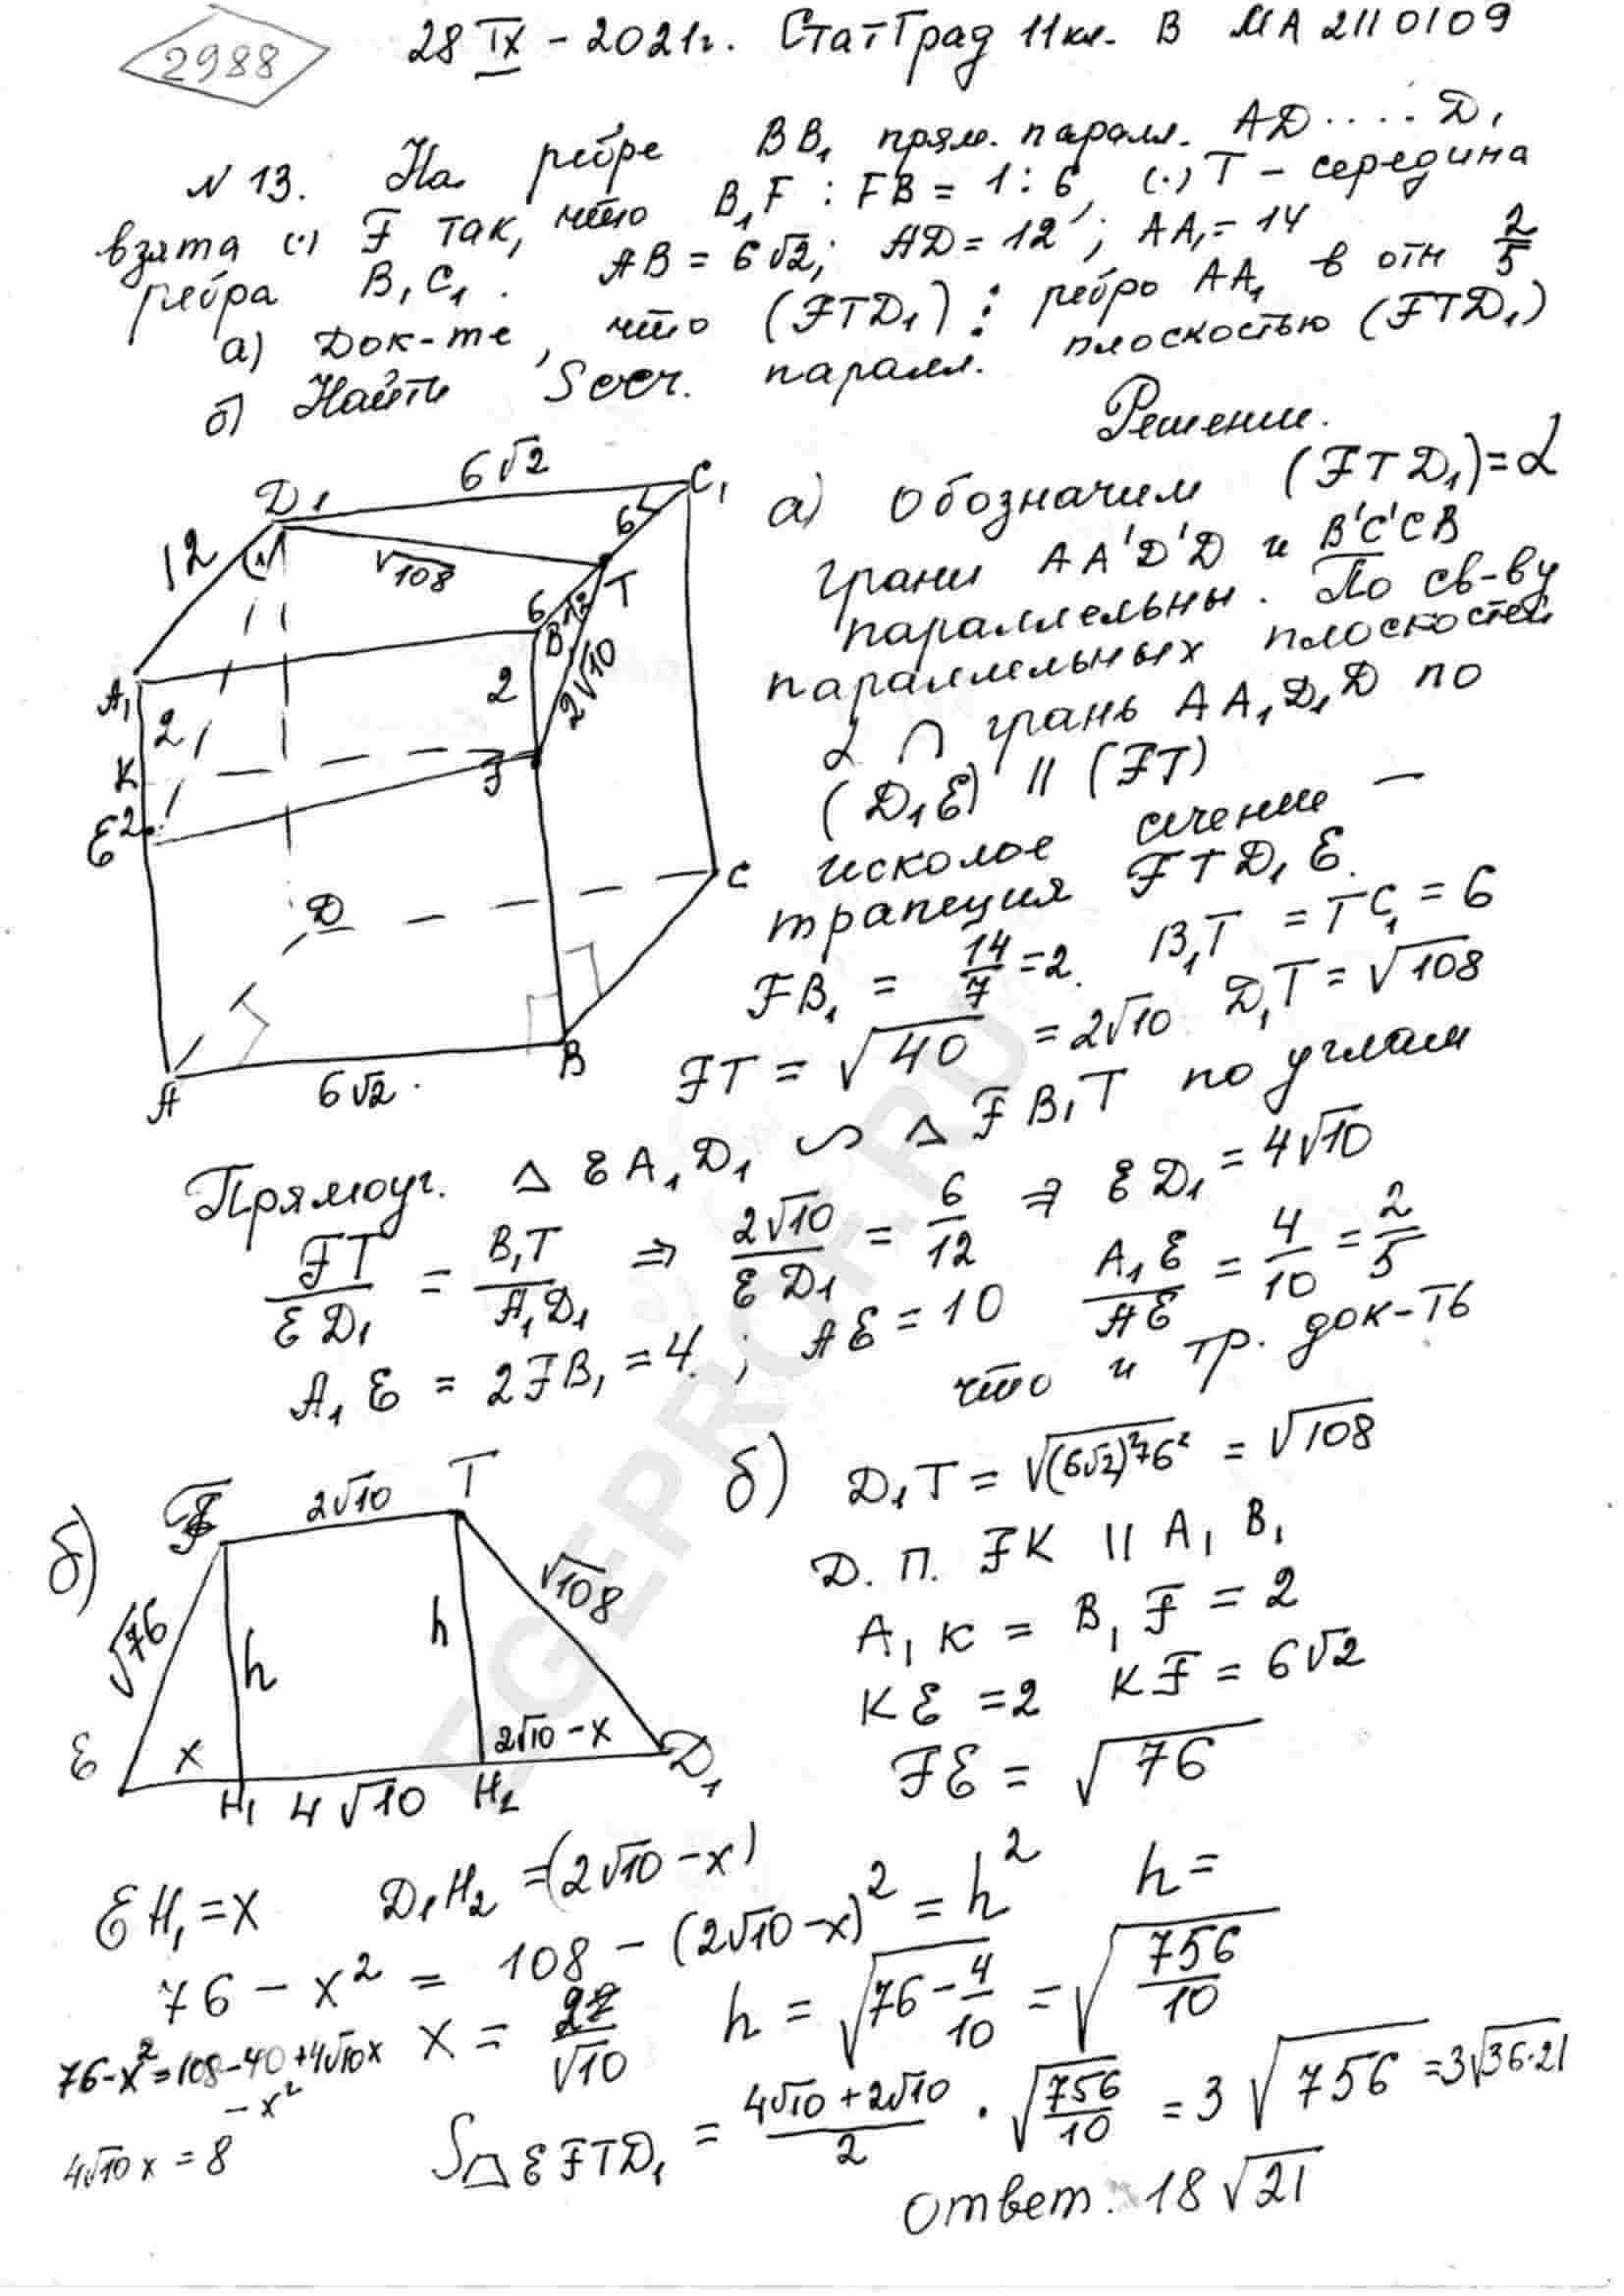 2988
28 IX - 2021г. СтатГрад 11кл. В МА 2110109
№ 13. На ребре BB₁ прям. паралл. AD....D₁
взята (·) F так, что B₁F : FB = 1 : 6, (·) T - середина
ребра B₁C₁. AB = 6√2; AD = 12; AA₁ = 14
а) Док-те, что (FTD₁) ⋮ ребро AA₁ в отн 2/5
б) Найти Sсеч. паралл. плоскостью (FTD₁)
Решение.
D₁ 6√2 C₁
12 √108 6
6 T
B₁ 12
A₁ 2 2 2√10
K F
E 2
D C
A 6√2. B
а) Обозначим (FTD₁) = α
грани AA'D'D и B'C'CB
параллельны. По св-ву
параллельных плоскостей
α ∩ грань AA₁D₁D по
(D₁E) || (FT)
искомое сечение –
трапеция FTD₁E.
FB₁ = 14/7 = 2. B₁T = TC₁ = 6
FT = √40 = 2√10 D₁T = √108
Прямоуг. Δ EA₁D₁ ∽ Δ FB₁T по углам
FT/ED₁ = B₁T/A₁D₁ ⇒ 2√10/ED₁ = 6/12 ⇒ ED₁ = 4√10
A₁E = 2FB₁ = 4 ; AE = 10 A₁E/AE = 4/10 = 2/5
что и тр. док-ть
б) F 2√10 T
√76 h h √108
E x H₁ 4√10 H₂ 2√10 - x D₁
б) D₁T = √(6√2)²+6² = √108
Д. п. FK || A₁B₁
A₁K = B₁F = 2
KE = 2 KF = 6√2
FE = √76
EH₁ = x D₁H₂ = (2√10 - x)
76 - x² = 108 - (2√10 - x)² = h² h =
76 - x² = 108 - 40 + 4√10x - x²
4√10 x = 8
x = 2/√10 h = √76 - 4/10 = √756/10
S EFTD₁ = 4√10 + 2√10/2 · √756/10 = 3√756 = 3√36·21
Ответ. 18√21
EGEPROF.RU